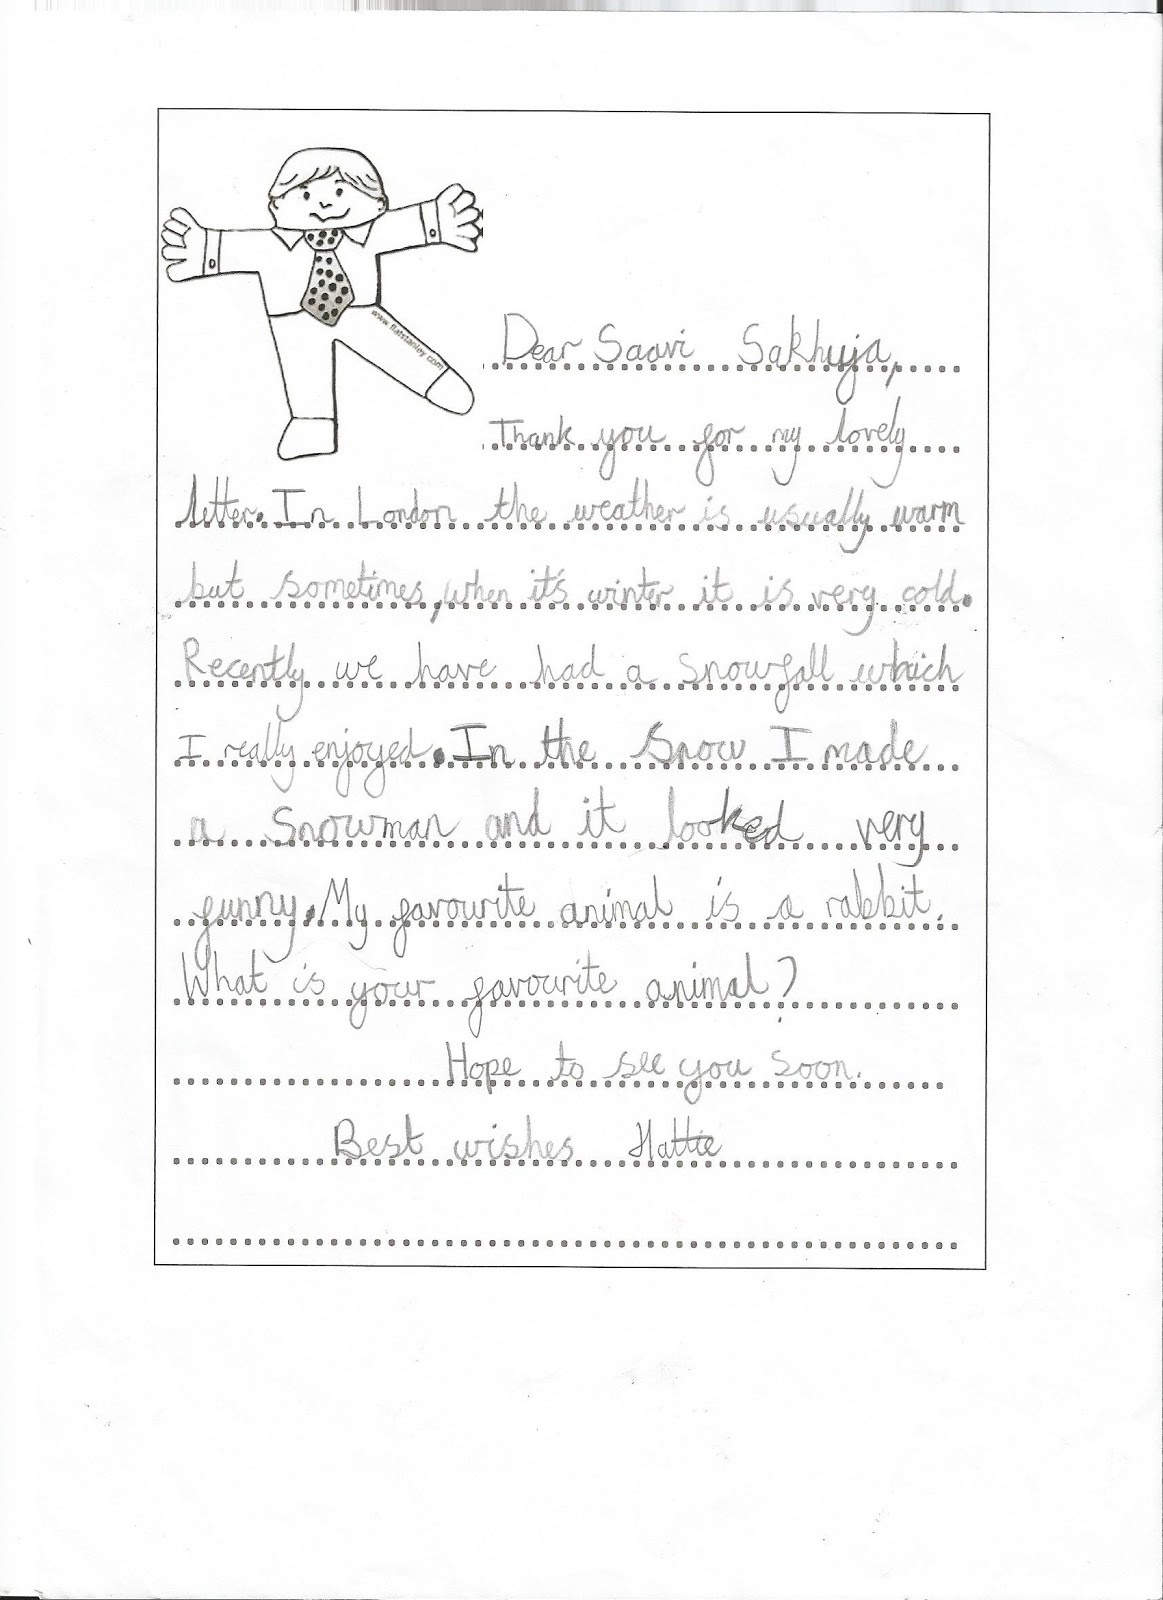 www.flatstanley.com
Dear Saavi Sakhuja,
Thank you for my lovely
letter. In London the weather is usually warm
but sometimes, when it's winter it is very cold.
Recently we have had a snowfall which
I really enjoyed. In the snow I made
a snowman and it looked very
funny. My favourite animal is a rabbit.
What is your favourite animal?
Hope to see you soon.
Best wishes Hattie